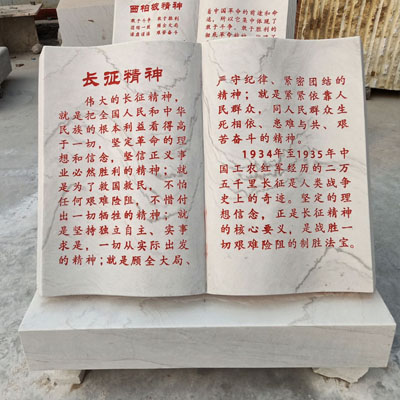 西柏坡精神
长征精神
伟大的长征精神，
就是把全国人民和中华
民族的根本利益看得高
于一切，坚定革命的理
想和信念，坚信正义事
业必然胜利的精神；就
是为了救国救民，不怕
任何艰难险阻，不惜付
出一切牺牲的精神；就
是坚持独立自主、实事
求是，一切从实际出发
的精神；就是顾全大局、
严守纪律、紧密团结的
精神；就是紧紧依靠人
民群众，同人民群众生
死相依、患难与共、艰
苦奋斗的精神。
1934年至1935年中
国工农红军经历的二万
五千里长征是人类战争
史上的奇迹。坚定的理
想信念，正是长征精神
的核心要义，是战胜一
切艰难险阻的制胜法宝。